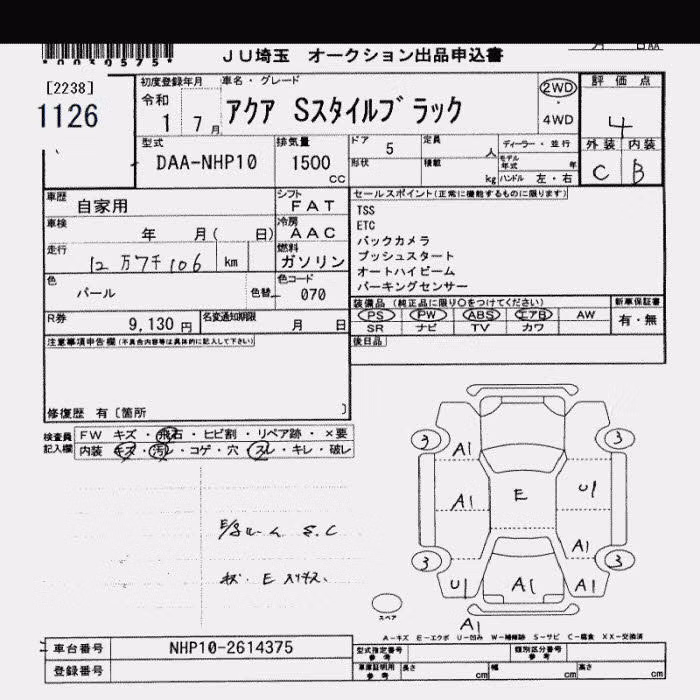 JU埼玉 オークション出品申込書
[2238]
1126
初度登録年月
令和
1 7月
車名・グレード
アクア Sスタイルブラック
2WD
・
4WD
評価点
4
外装 内装
C B
型式
DAA-NHP10
排気量
1500
CC
ドア 5 定員 人
形状 積載 kg
ディーラー・並行
モデル年式 年
ハンドル 左・右
車歴 自家用
シフト FAT
車検 年 月( 日)
冷房 AAC
走行 12万7千106 km
燃料 ガソリン
色 パール 色替
色コード 070
R券 9,130円
名変通知期限 月 日
セールスポイント(正常に機能するものに限ります)
TSS
ETC
バックカメラ
プッシュスタート
オートハイビーム
パーキングセンサー
装備品 (純正品に限り○をつけてください)
PS PW ABS エアB AW
SR ナビ TV カワ
新車保証書
有・無
後日品
注意事項申告欄(不具合内容等は具体的に記入して下さい)
修復歴 有〔箇所 〕
検査員記入欄
FW キズ・飛石・ヒビ割・リペア跡・×要
内装 キズ・汚レ・コゲ・穴・スレ・キレ・破レ
3 A1 3
A1 E U1
3 A1 3
U1 A1 A1
A1
スペア
A-キズ E-エクボ U-凹み W-補修跡 S-サビ C-腐食 XX-交換済
車台番号 NHP10-2614375
登録番号
型式指定番号 参考
類別区分番号 参考
車庫証明用 参考 長さ cm 幅 cm 高さ cm